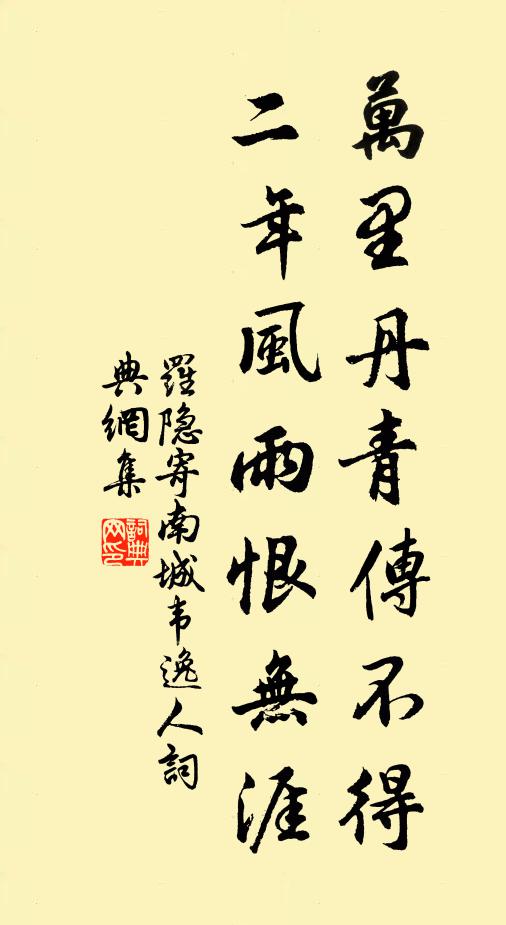 萬里丹青傳不得
二年風雨恨無涯
羅隐寄南城韦逸人詞
典網集
詞典网印